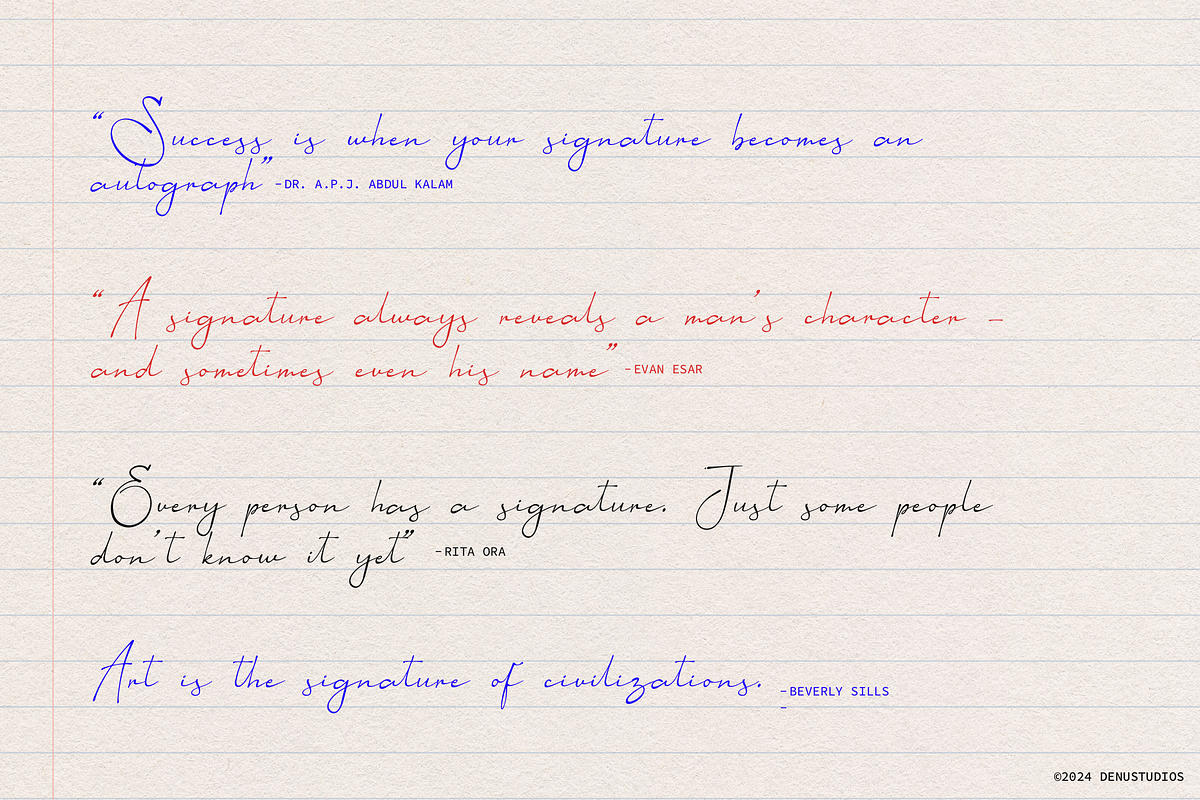 “Success is when your signature becomes an
autograph” -DR. A.P.J. ABDUL KALAM
“A signature always reveals a man’s character -
and sometimes even his name” -EVAN ESAR
“Every person has a signature. Just some people
don’t know it yet” -RITA ORA
Art is the signature of civilizations. -BEVERLY SILLS
-
©2024 DENUSTUDIOS